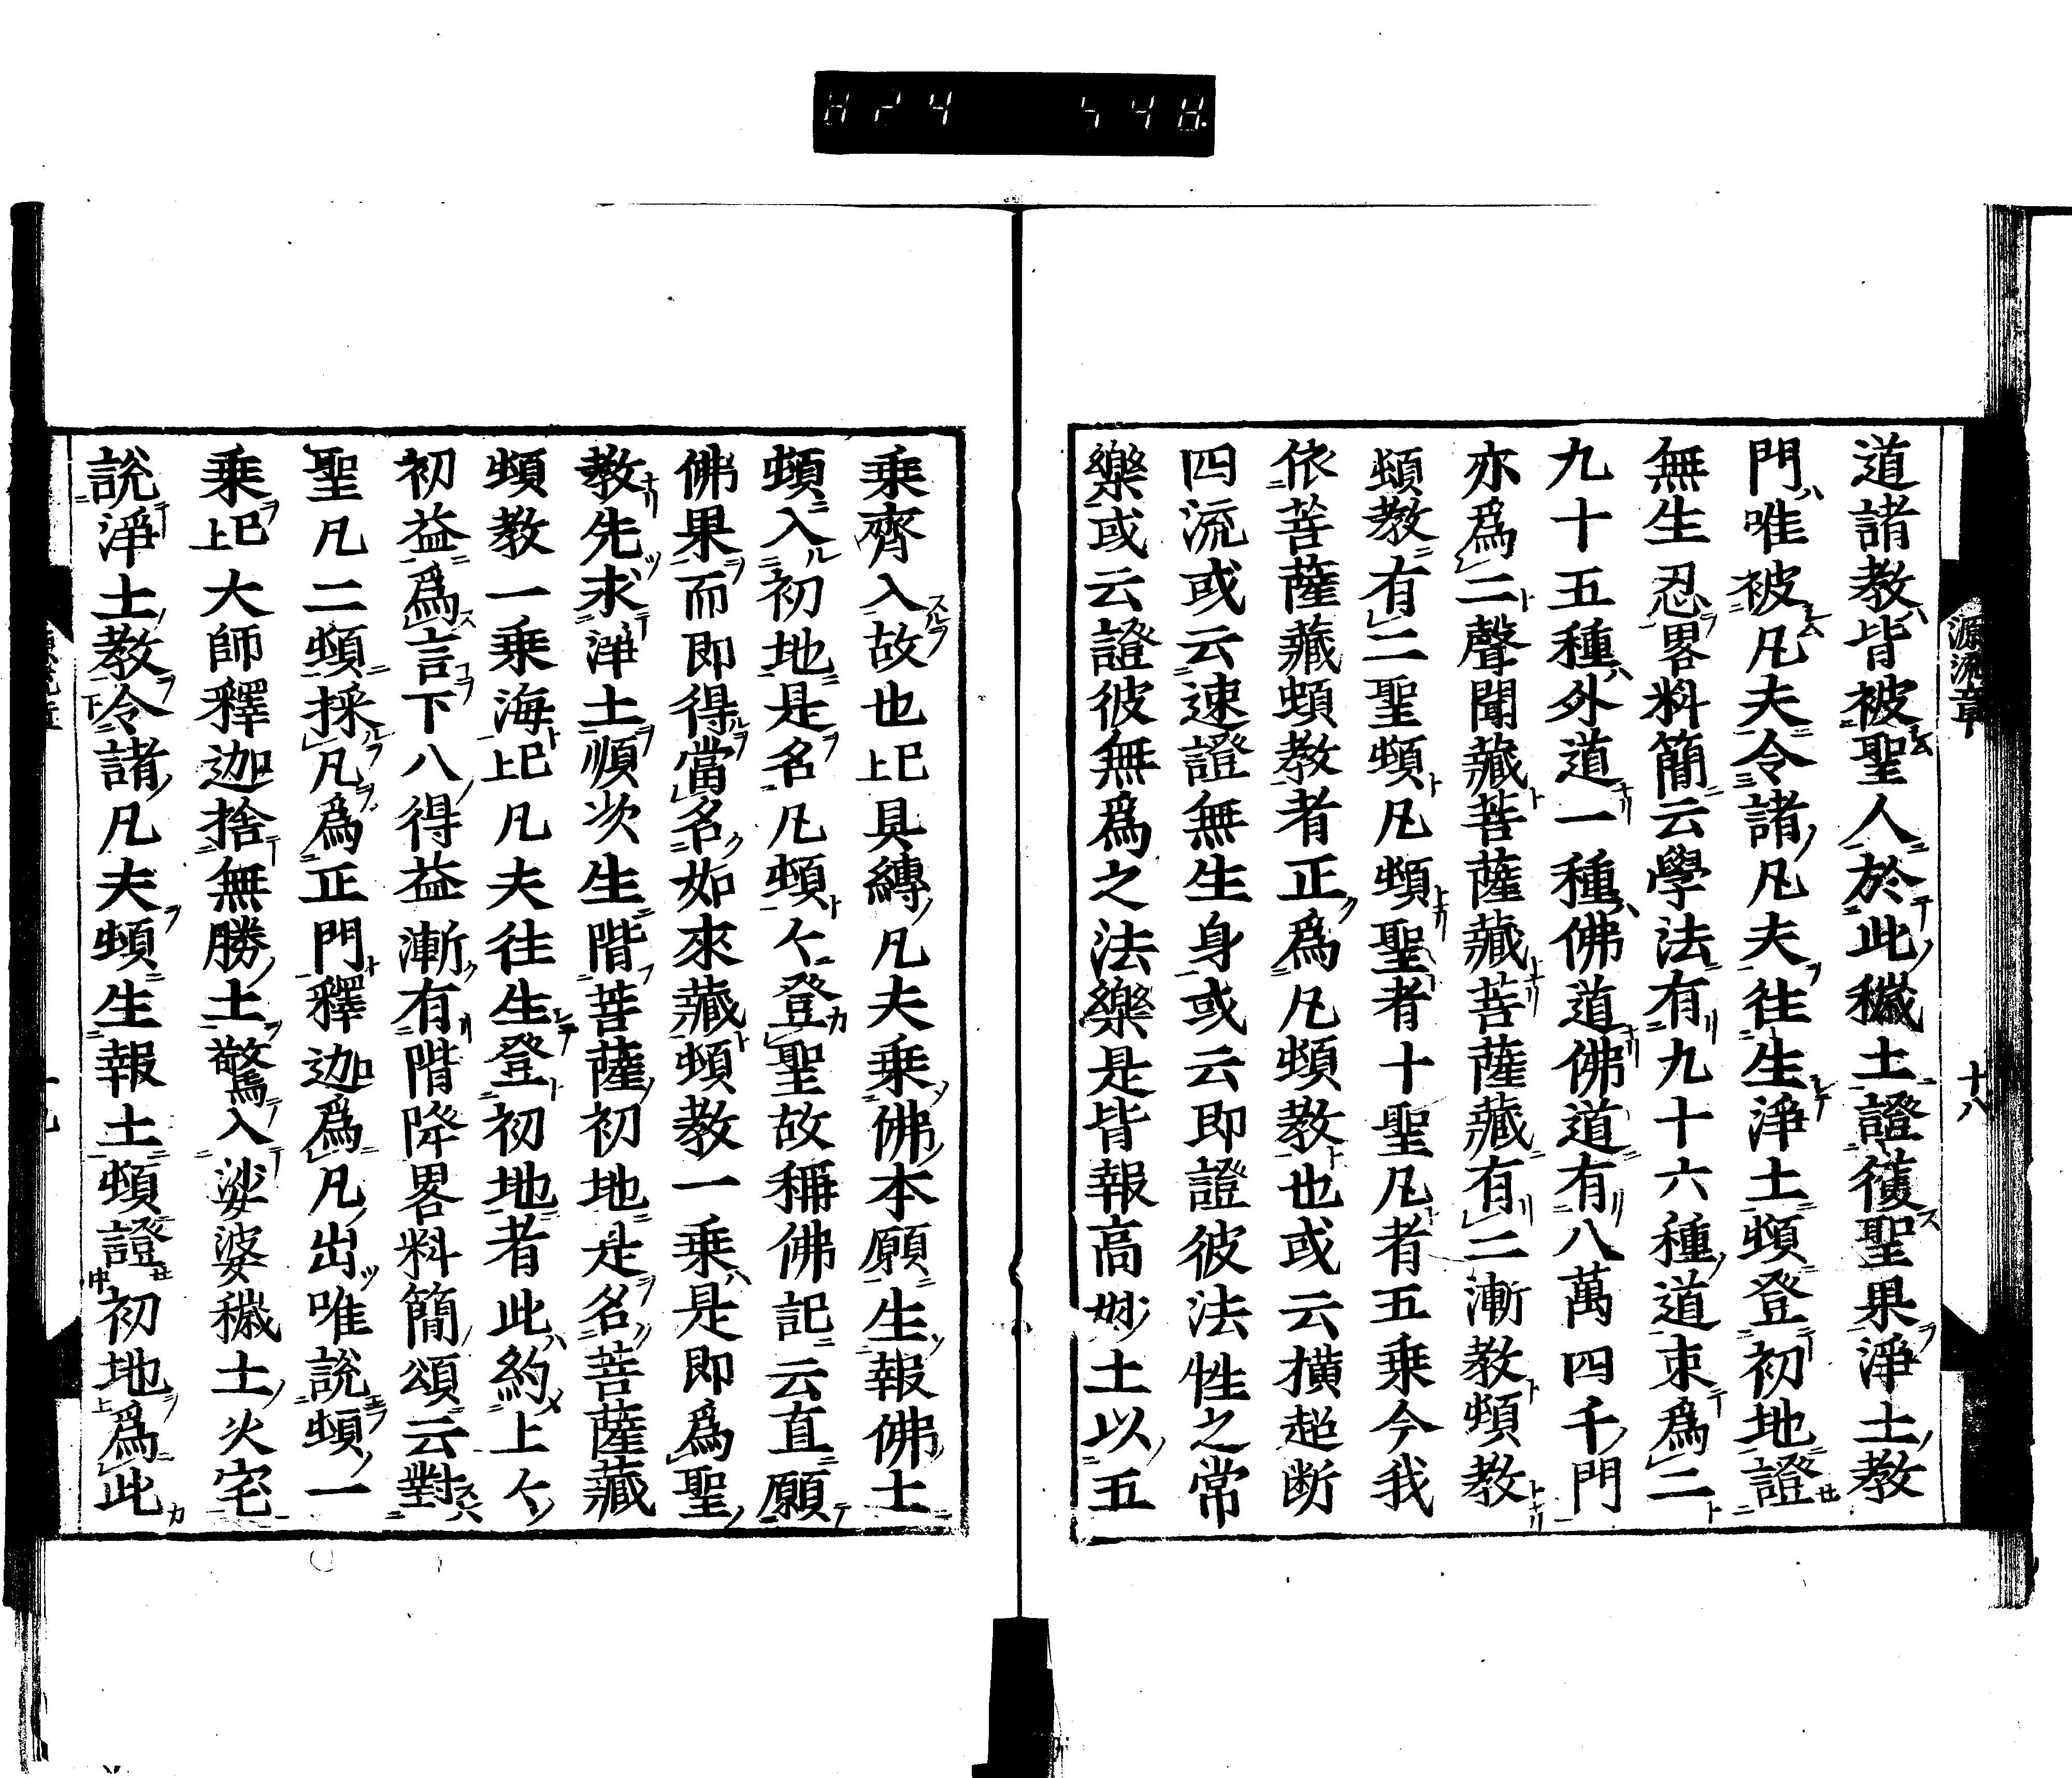 道諸教皆被聖人於此穢土證獲聖果淨土教
門唯被凡夫令諸凡夫往生淨土頓登初地證
無生忍畧料簡云學法有九十六種道束爲二
九十五種外道一種佛道佛道有八萬四千門
亦爲二聲聞藏菩薩藏菩薩藏有二漸教頓教
頓教有二聖頓凡頓聖者十聖凡者五乗今我
依菩薩藏頓教者正爲凡頓教也或云横超断
四流或云速證無生身或云即證彼法性之常
樂或云證彼無爲之法樂是皆報高妙土以五
乗齊入故也已上具縛凡夫乗佛本願生報佛土
頓入初地是名凡頓仝登聖故稱佛記云直願
佛果而即得當名如來藏頓教一乗是即爲聖
教先求淨土順次生階菩薩初地是名菩薩藏
頓教一乗海已上凡夫往生登初地者此約上仝
初益爲言下八得益漸有階降畧料簡頌云對
聖凡二頓採凡爲正門釋迦爲凡出唯説頓一
乗已上大師釋迦捨無勝土驚入娑婆穢土火宅
説淨土教令諸凡夫頓生報土頓證初地爲此
源流章
十八